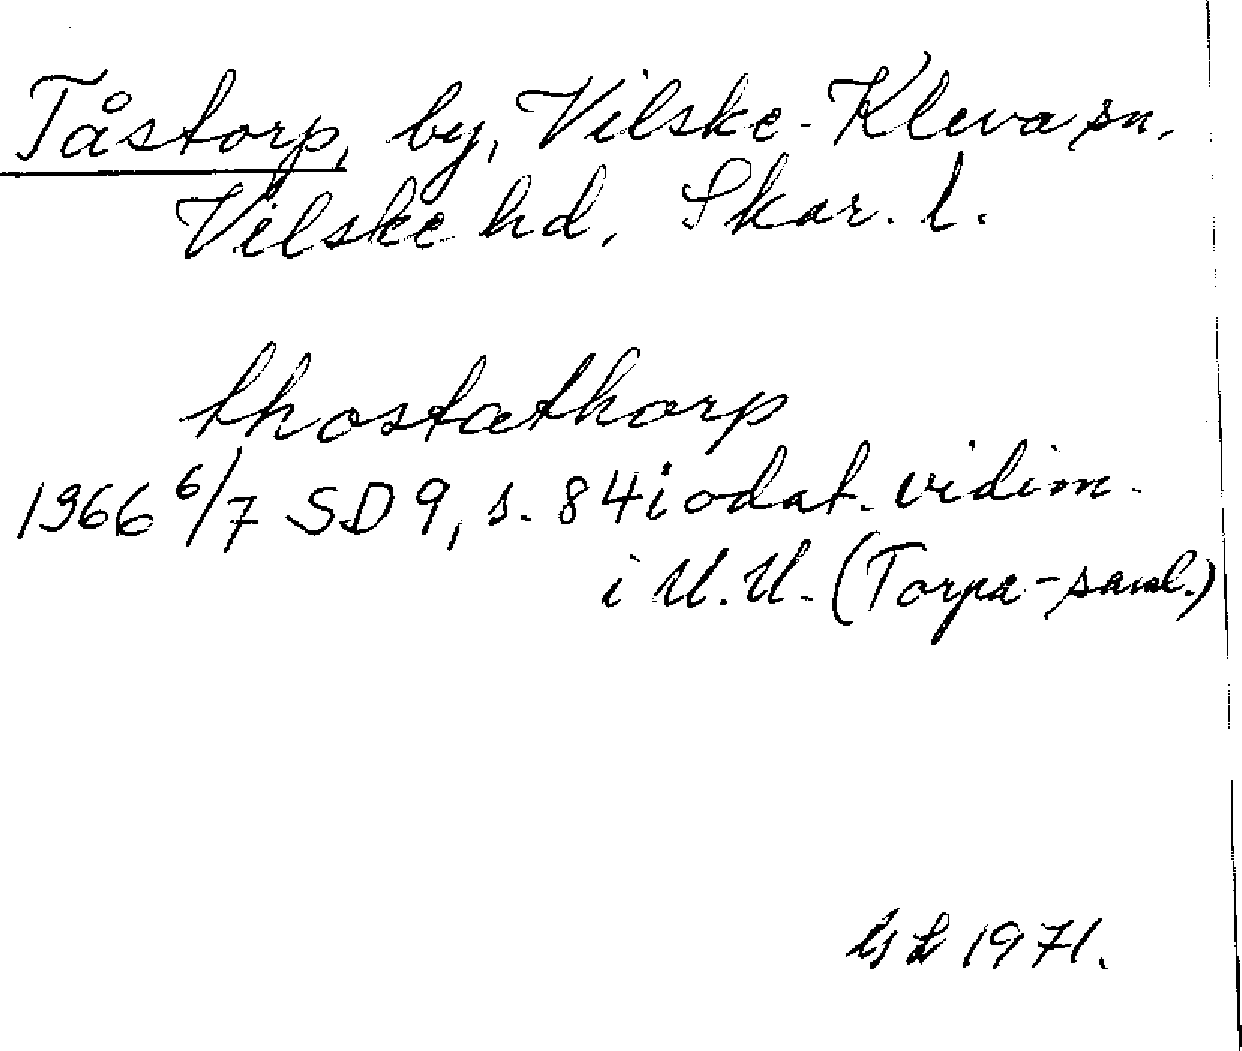 Tåstorp, by, Vilske-Kleva sn.
Vilske hd, Skar. l.
thostathorp
1366 6/7 SD 9, s. 84 i odat. vidim.
i U.U. (Torpa-saml.)
GL 1971.